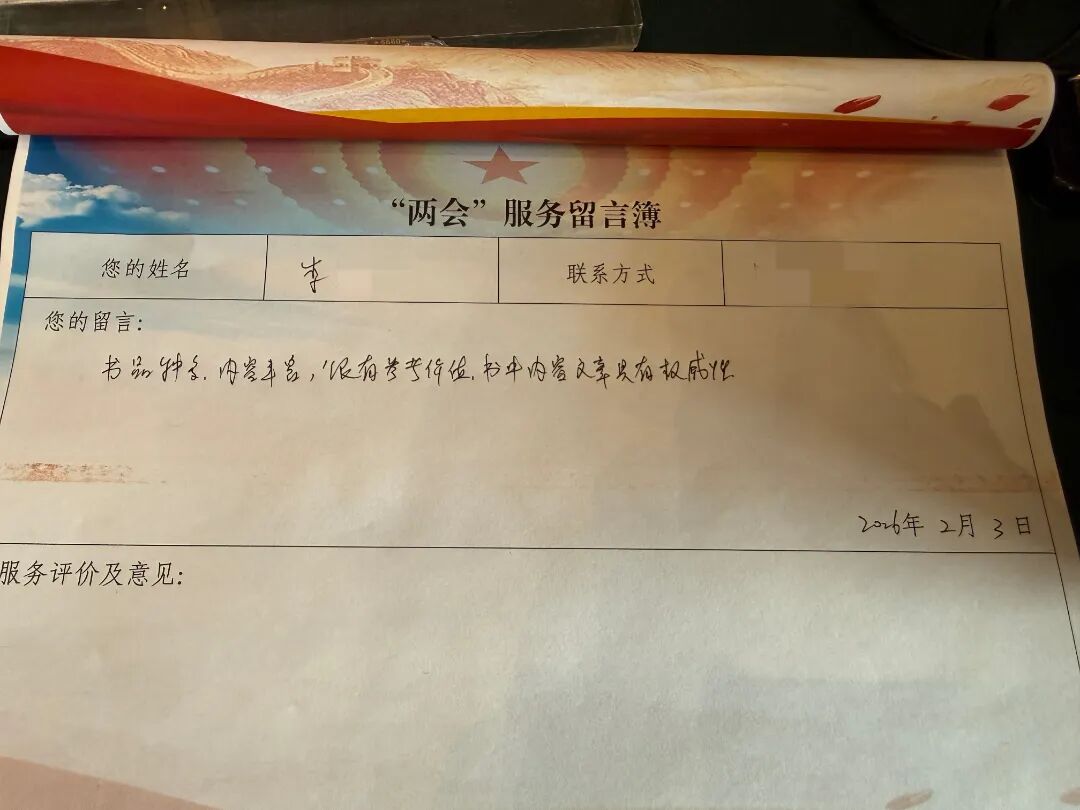 “两会”服务留言簿
您的姓名 李 联系方式
您的留言:
书品种多.内容丰富,很有参考价值.书中内容文章具有权威性.
2026年 2月 3日
服务评价及意见: